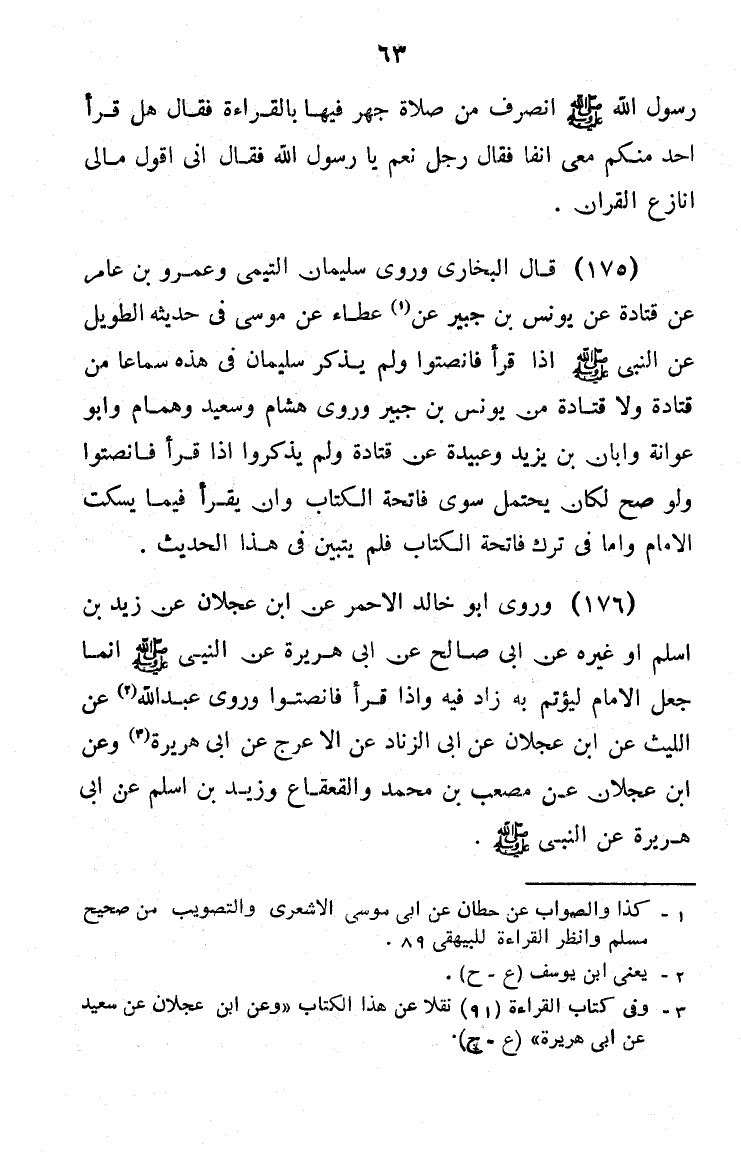 ٦٣
رسول الله ﷺ انصرف من صلاة جهر فيها بالقراءة فقال هل قرأ
احد منكم معى انفا فقال رجل نعم يا رسول الله فقال انى اقول مالى
انازع القران .
(١٧٥) قال البخارى وروى سليمان التيمى وعمرو بن عامر
عن قتادة عن يونس بن جبير عن(١) عطاء عن موسى فى حديثه الطويل
عن النبى ﷺ اذا قرأ فانصتوا ولم يذكر سليمان فى هذه سماعا من
قتادة ولا قتادة من يونس بن جبير وروى هشام وسعيد وهمام وابو
عوانة وابان بن يزيد وعبيدة عن قتادة ولم يذكروا اذا قرأ فانصتوا
ولو صح لكان يحتمل سوى فاتحة الكتاب وان يقرأ فيما يسكت
الامام واما فى ترك فاتحة الكتاب فلم يتبين فى هذا الحديث .
(١٧٦) وروى ابو خالد الاحمر عن ابن عجلان عن زيد بن
اسلم او غيره عن ابى صالح عن ابى هريرة عن النبى ﷺ انما
جعل الامام ليؤتم به زاد فيه واذا قرأ فانصتوا وروى عبدالله(٢) عن
الليث عن ابن عجلان عن ابى الزناد عن الاعرج عن ابى هريرة(٣) وعن
ابن عجلان عن مصعب بن محمد والقعقاع وزيد بن اسلم عن ابى
هريرة عن النبى ﷺ .
١ - كذا والصواب عن حطان عن ابى موسى الاشعرى والتصويب من صحيح
مسلم وانظر القراءة للبيهقى ٨٩ .
٢ - يعنى ابن يوسف (ع - ح) .
٣ - وفى كتاب القراءة (٩١) نقلا عن هذا الكتاب «وعن ابن عجلان عن سعيد
عن ابى هريرة» (ع - ح).